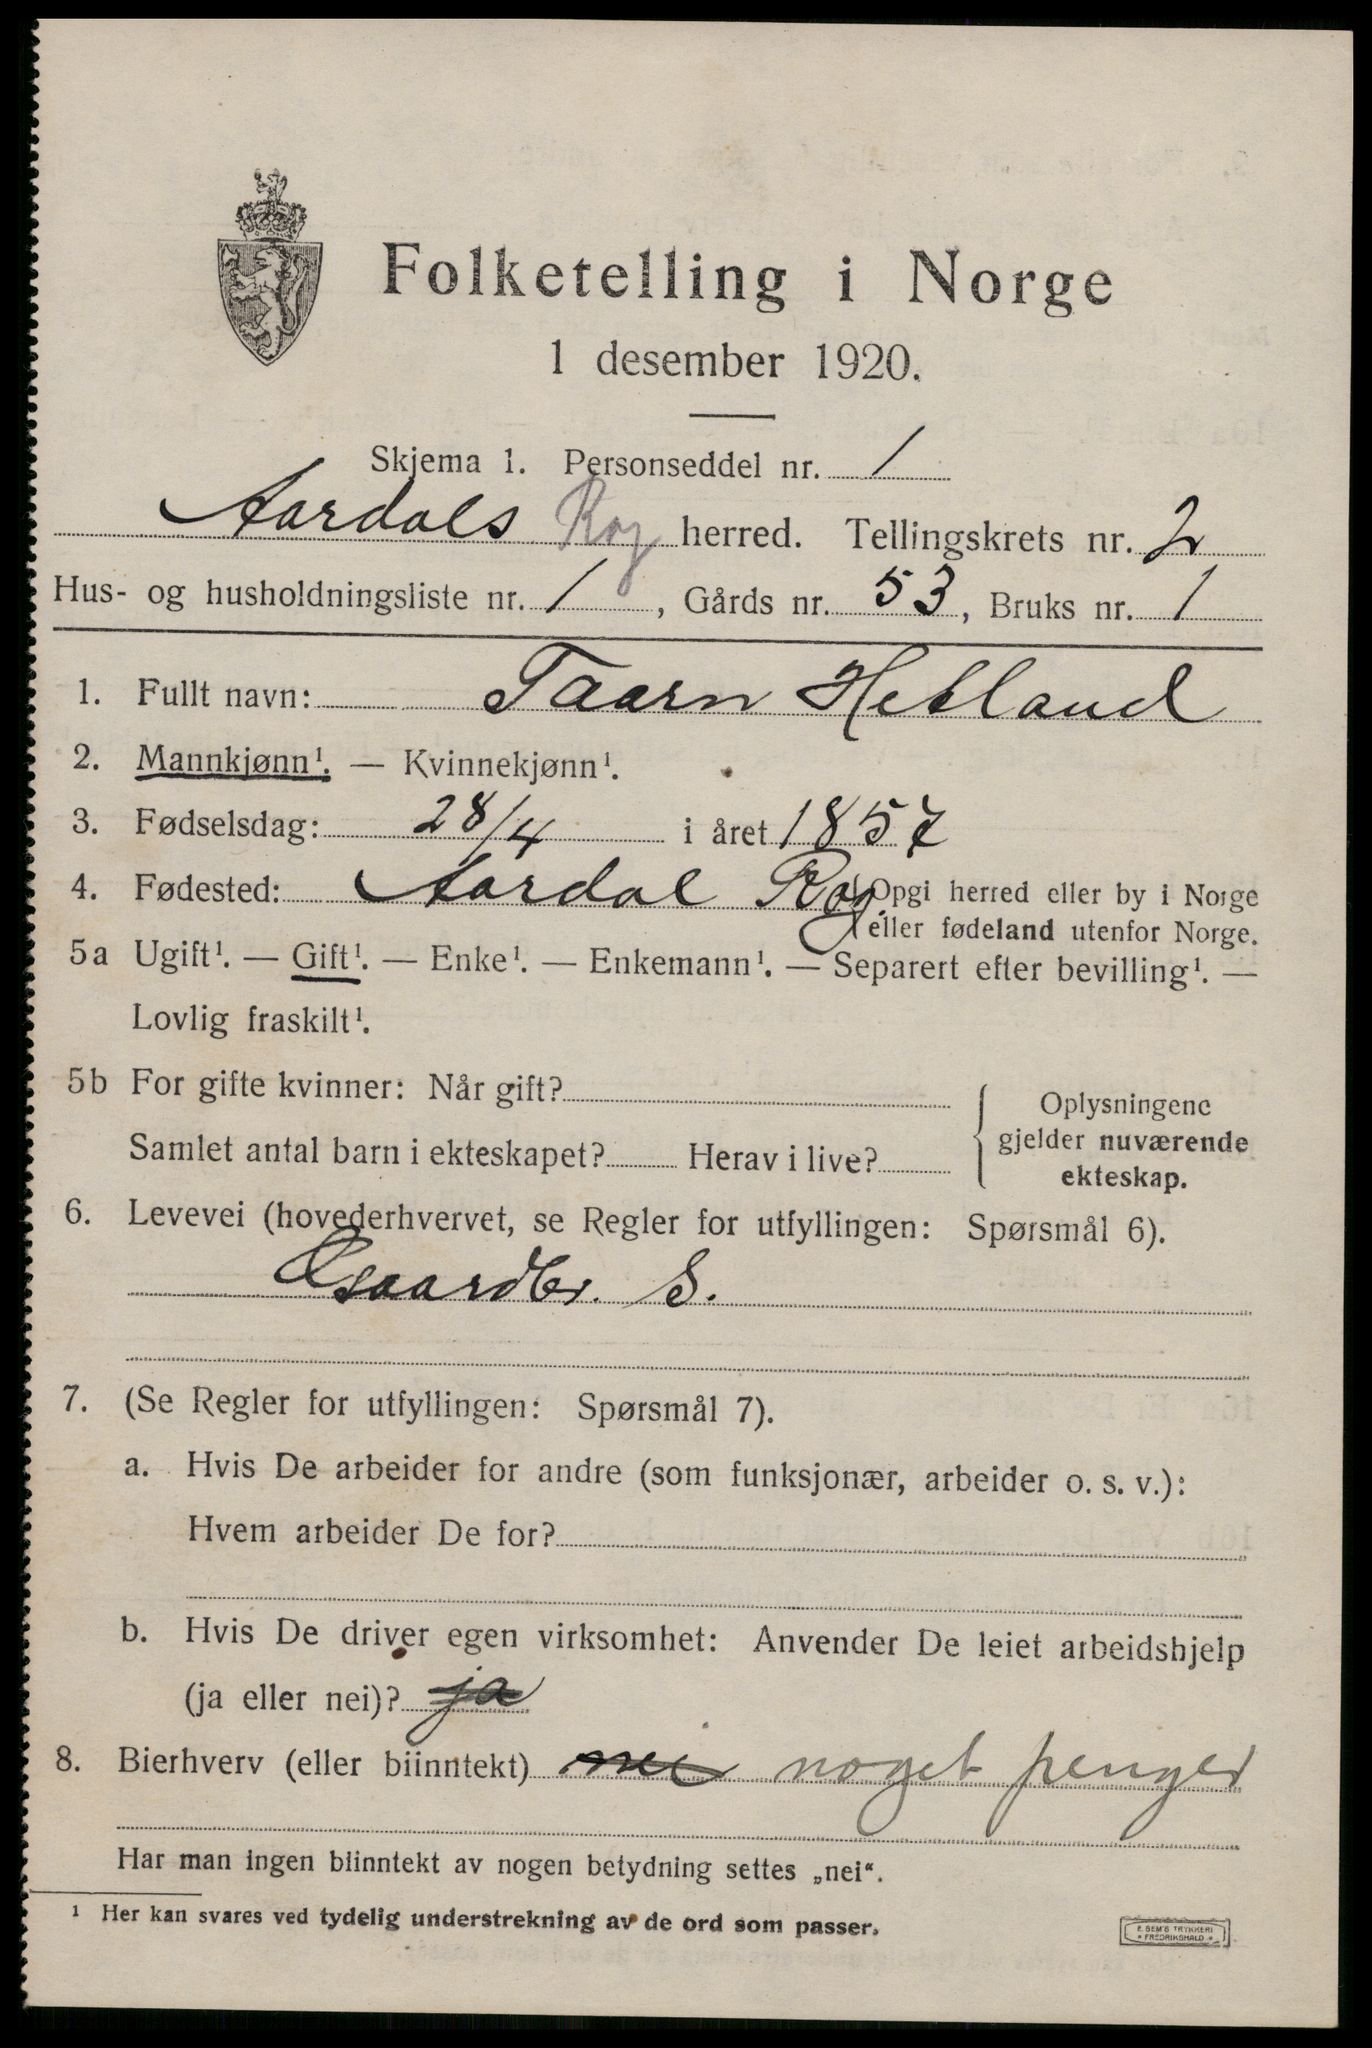 Folketelling i Norge
1 desember 1920.
Skjema 1. Personseddel nr. 1
Aardals Rog herred. Tellingskrets nr. 2
Hus- og husholdningsliste nr. 1, Gårds nr. 53, Bruks nr. 1
1. Fullt navn: Taarn Hetland
2. Mannkjønn¹. — Kvinnekjønn¹.
3. Fødselsdag: 28/4 i året 1857
4. Fødested: Aardal Rog. Opgi herred eller by i Norge
eller fødeland utenfor Norge.
5a Ugift¹. — Gift¹. — Enke¹. — Enkemann¹. — Separert efter bevilling¹. —
Lovlig fraskilt¹.
5b For gifte kvinner: Når gift?
Samlet antal barn i ekteskapet? Herav i live?
Oplysningene
gjelder nuværende
ekteskap.
6. Levevei (hovederhvervet, se Regler for utfyllingen: Spørsmål 6).
Gaardbr. S.
7. (Se Regler for utfyllingen: Spørsmål 7).
a. Hvis De arbeider for andre (som funksjonær, arbeider o. s. v.):
Hvem arbeider De for?
b. Hvis De driver egen virksomhet: Anvender De leiet arbeidshjelp
(ja eller nei)? ja
8. Bierhverv (eller biinntekt) nei noget penger
Har man ingen biinntekt av nogen betydning settes „nei“.
¹ Her kan svares ved tydelig understrekning av de ord som passer.
E. SEM'S TRYKKERI
FREDRIKSHALD